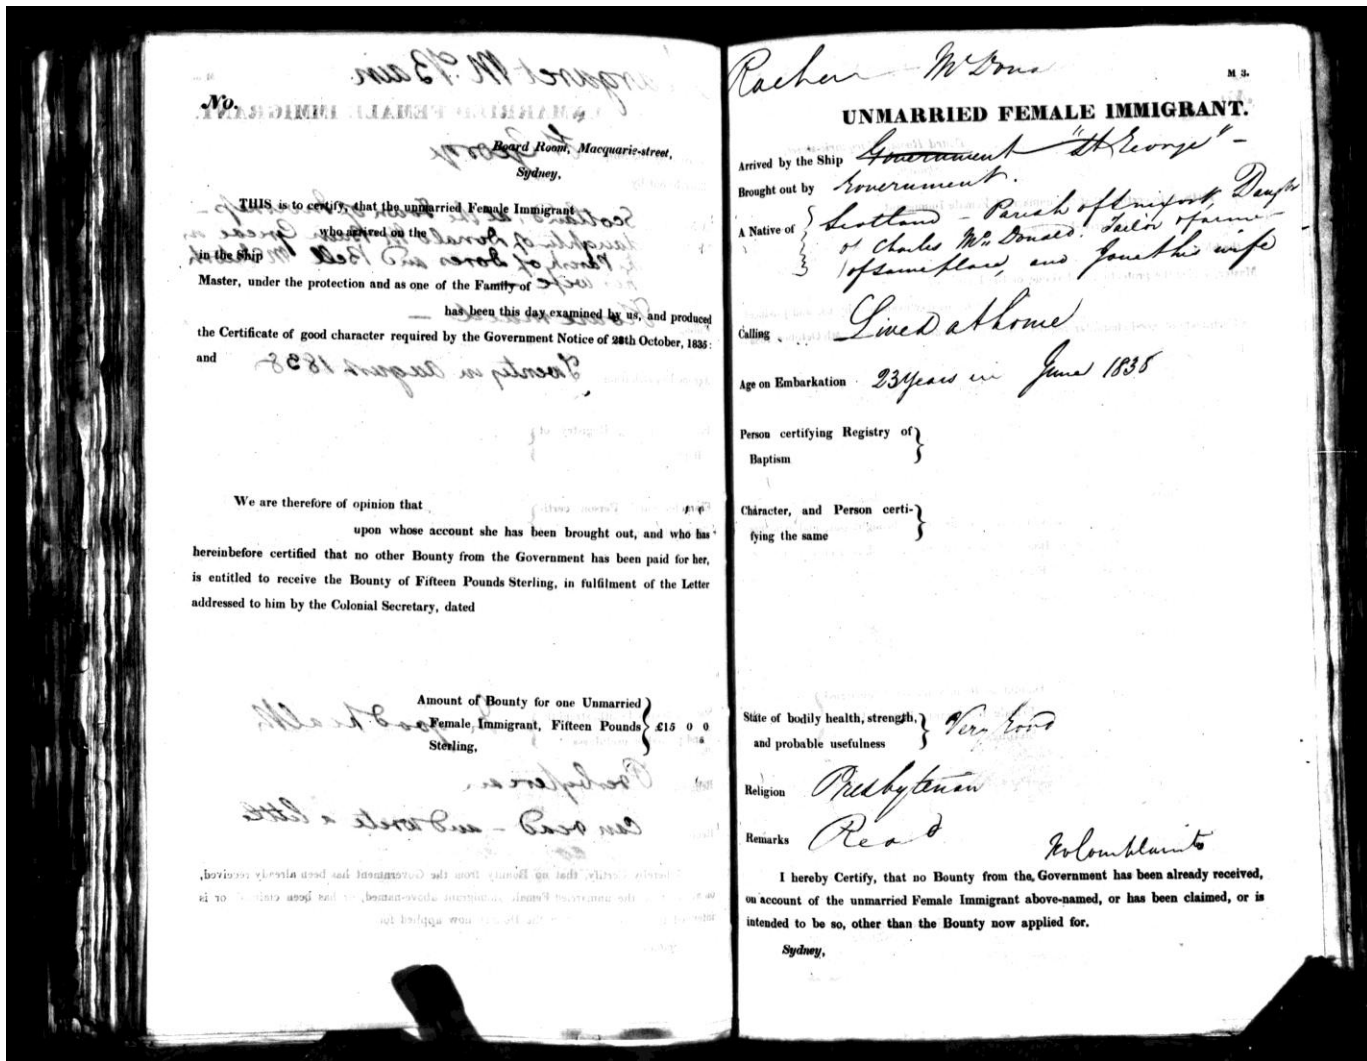 No.
Board Room, Macquarie-street,
Sydney,
THIS is to certify, that the unmarried Female Immigrant
who arrived on the
in the Ship
Master, under the protection and as one of the Family of
has been this day examined by us, and produced
the Certificate of good character required by the Government Notice of 28th October, 1835:
and
We are therefore of opinion that
upon whose account she has been brought out, and who has
hereinbefore certified that no other Bounty from the Government has been paid for her,
is entitled to receive the Bounty of Fifteen Pounds Sterling, in fulfilment of the Letter
addressed to him by the Colonial Secretary, dated
Amount of Bounty for one Unmarried
Female Immigrant, Fifteen Pounds £15 0 0
Sterling,
McDona
M 3.
UNMARRIED FEMALE IMMIGRANT.
Arrived by the Ship Government "St George"
Brought out by Government.
A Native of Scotland - Parish of Daugh
of Charles McDonald. Tailor
of same place, and his wife
Calling Lived at home
Age on Embarkation 23 years in June 1838
Person certifying Registry of
Baptism
Character, and Person certi-
fying the same
State of bodily health, strength,
and probable usefulness Very Good
Religion Presbyterian
Remarks Read No Complaints
I hereby Certify, that no Bounty from the Government has been already received,
on account of the unmarried Female Immigrant above-named, or has been claimed, or is
intended to be so, other than the Bounty now applied for.
Sydney,